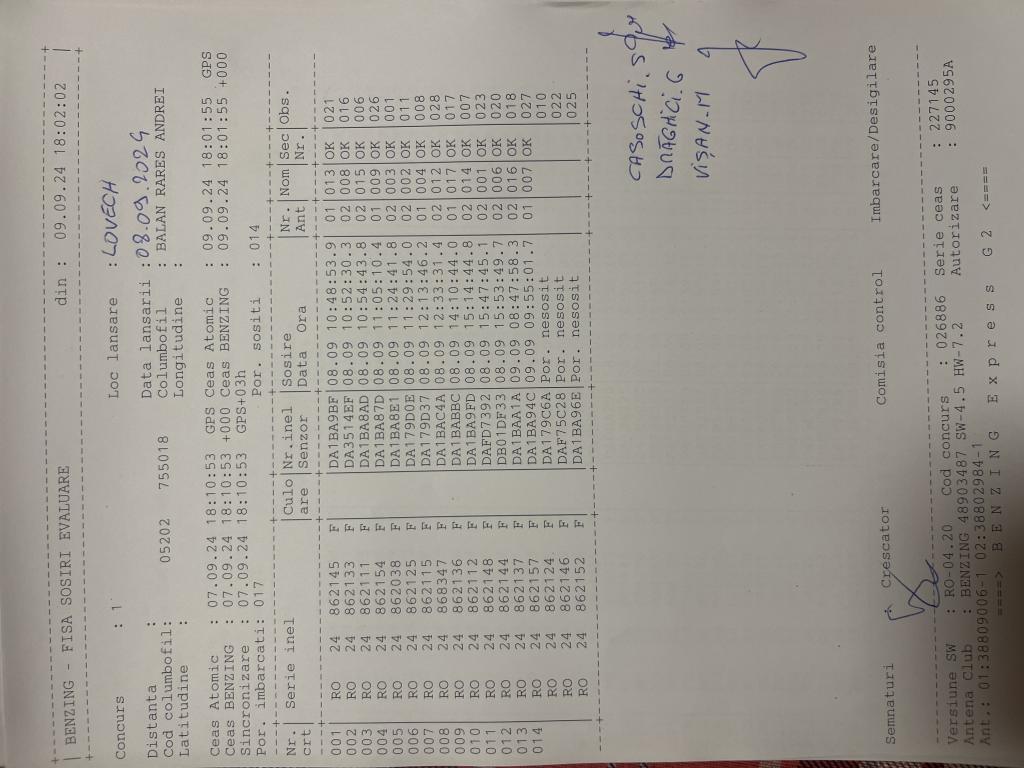 +---------------------------------------------------------------+
| BENZING - FISA SOSIRI EVALUARE din : 09.09.24 18:02:02 |
+---------------------------------------------------------------+
Concurs : 1 Loc lansare : LOVECH
Distanta : Data lansarii : 08.09.2024
Cod columbofil: 05202 755018 Columbofil : BALAN RARES ANDREI
Latitudine : Longitudine :
Ceas Atomic : 07.09.24 18:10:53 GPS Ceas Atomic : 09.09.24 18:01:55 GPS
Ceas BENZING : 07.09.24 18:10:53 +000 Ceas BENZING : 09.09.24 18:01:55 +000
Sincronizare : 07.09.24 18:10:53 GPS+03h
Por. imbarcati: 017 Por. sositi : 014
Nr. | Serie inel |Culo|Nr.inel |Sosire |Nr. |Nom |Sec |Obs.
crt | |are |Senzor |Data Ora |Ant | |Nr. |
001 | RO 24 862145 F |DA1BA9BF|08.09 10:48:53.9| 01 |013|OK | 021
002 | RO 24 862133 F |DA3514EF|08.09 10:52:30.3| 02 |008|OK | 016
003 | RO 24 862111 F |DA1BA8AD|08.09 10:54:43.8| 02 |015|OK | 006
004 | RO 24 862154 F |DA1BA87D|08.09 11:05:10.4| 01 |009|OK | 026
005 | RO 24 862038 F |DA1BA8E1|08.09 11:24:41.8| 02 |003|OK | 001
006 | RO 24 862125 F |DA179D0E|08.09 11:29:54.0| 02 |002|OK | 011
007 | RO 24 862115 F |DA179D37|08.09 12:13:46.2| 01 |004|OK | 008
008 | RO 24 868347 F |DA1BAC4A|08.09 12:33:31.4| 02 |012|OK | 028
009 | RO 24 862136 F |DA1BABBC|08.09 14:10:44.0| 01 |017|OK | 017
010 | RO 24 862112 F |DA1BA9FD|08.09 15:14:44.8| 02 |014|OK | 007
011 | RO 24 862148 F |DAFD7392|08.09 15:47:45.1| 02 |001|OK | 023
012 | RO 24 862144 F |DB01DF33|08.09 15:53:49.7| 02 |006|OK | 020
013 | RO 24 862137 F |DA1BAA1A|09.09 08:47:58.3| 02 |016|OK | 018
014 | RO 24 862157 F |DA1BA94C|09.09 09:55:01.7| 01 |007|OK | 027
RO 24 862124 F |DA179C6A|Por. nesosit 010
RO 24 862146 F |DAF75C28|Por. nesosit 022
RO 24 862152 F |DA1BA96E|Por. nesosit 025
CASOSCHI.S
DRAGHICI.G
VIȘAN.M
Semnaturi Crescator Comisia control Imbarcare/Desigilare
Versiune SW : RO-04.20 Cod concurs : 026886 Serie ceas : 227145
Antena Club : BENZING 48903487 SW-4.5 HW-7.2 Autorizare : 9000295A
Ant.: 01:38809006-1 02:38802984-1
====> B E N Z I N G E x p r e s s G 2 <====